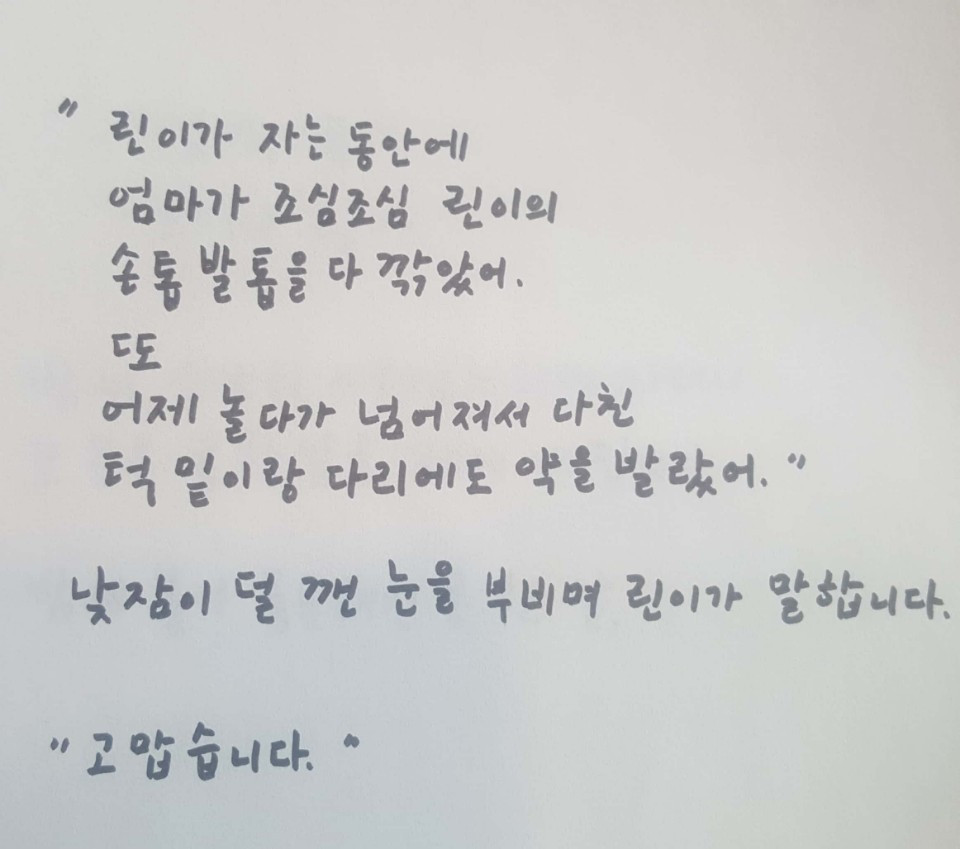 " 린이가 자는 동안에
엄마가 조심조심 린이의
손톱 발톱을 다 깎았어.
또
어제 놀다가 넘어져서 다친
턱 밑이랑 다리에도 약을 발랐어. "
낮잠이 덜 깬 눈을 부비며 린이가 말합니다.
" 고맙습니다. "